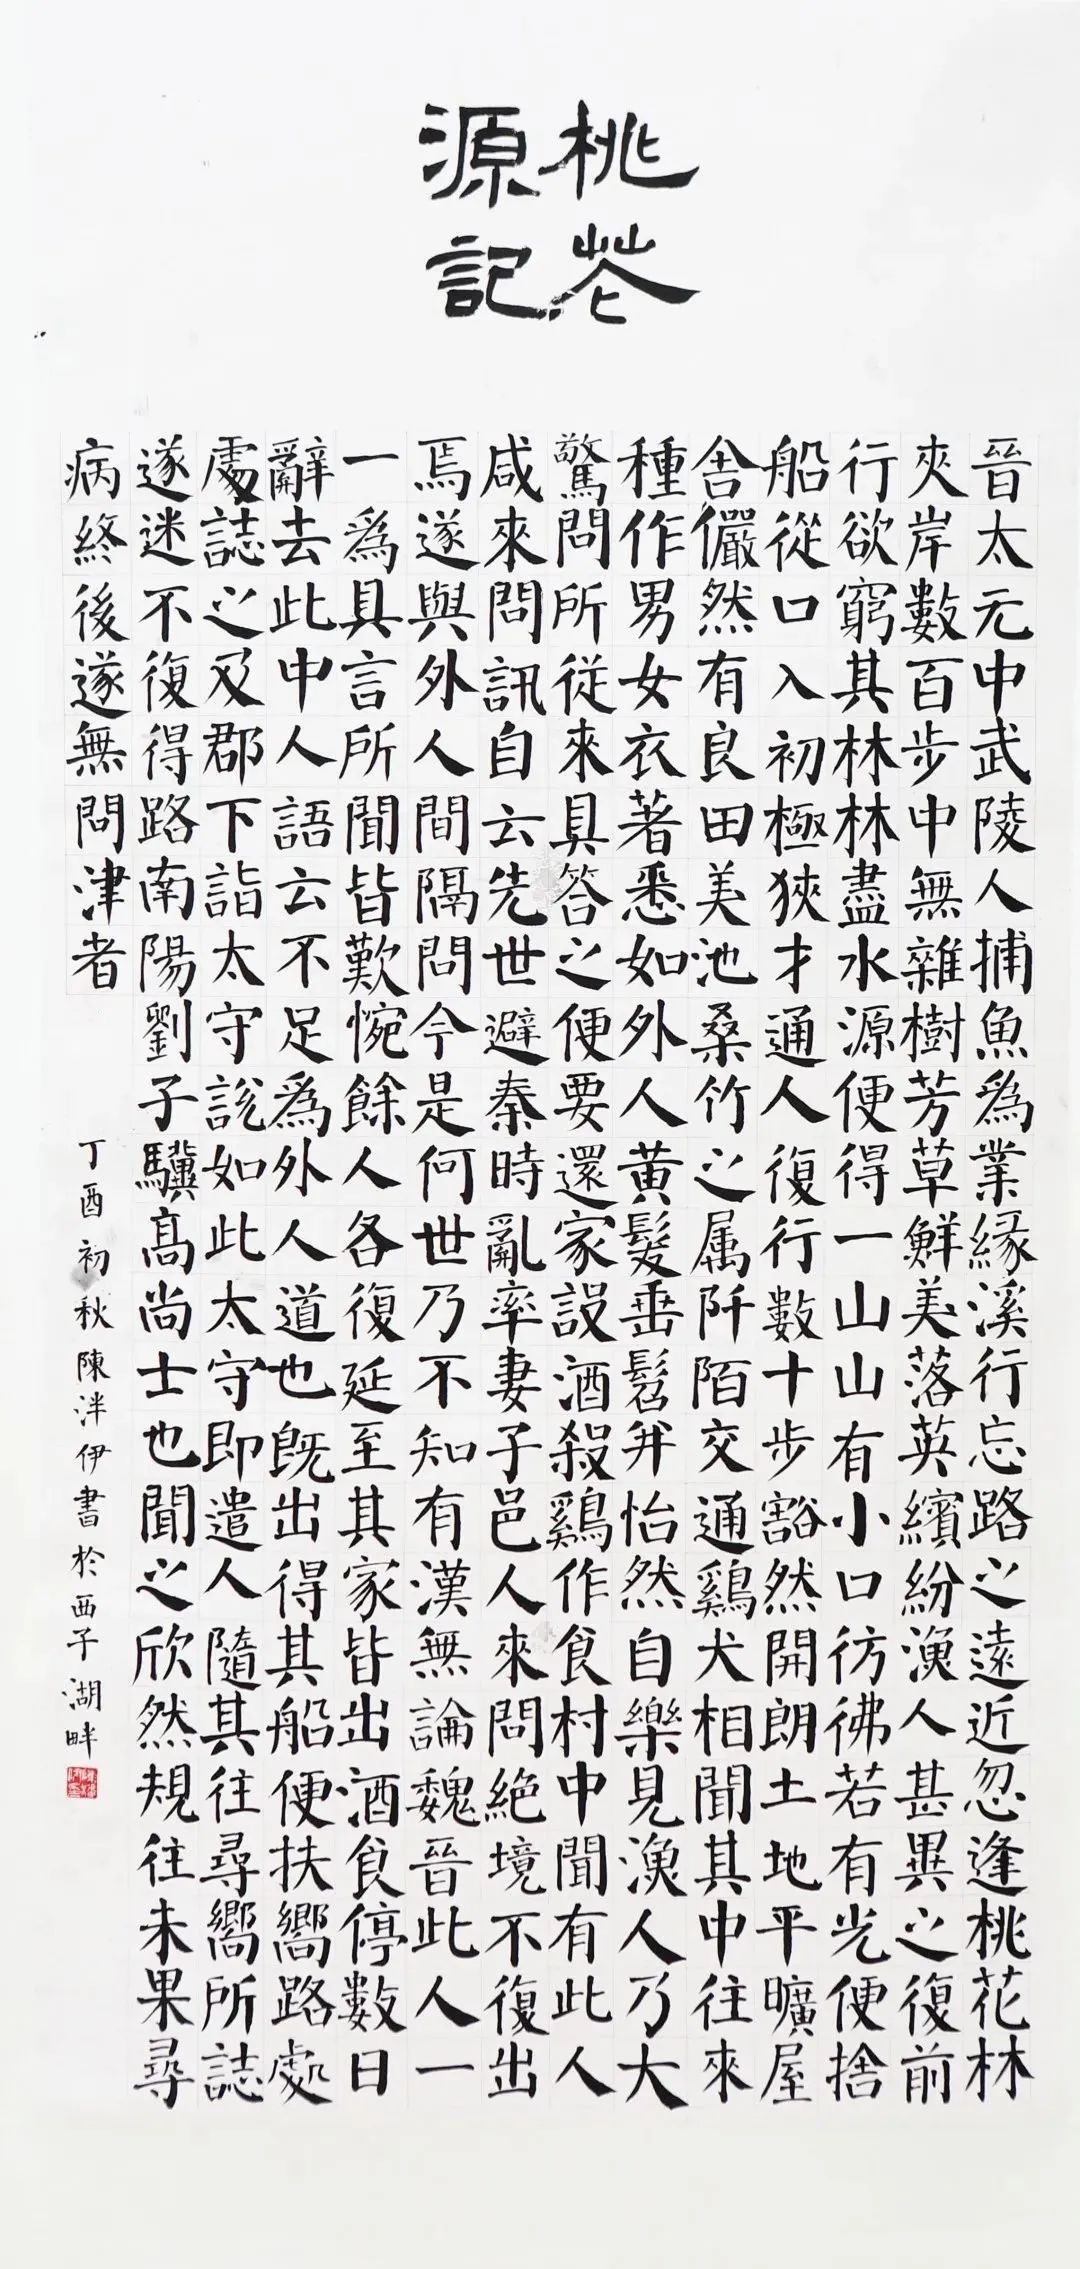 桃花
源記
晉太元中武陵人捕魚爲業緣溪行忘路之遠近忽逢桃花林
夾岸數百步中無雜樹芳草鮮美落英繽紛漁人甚異之復前
行欲窮其林林盡水源便得一山山有小口彷彿若有光便捨
船從口入初極狹才通人復行數十步豁然開朗土地平曠屋
舍儼然有良田美池桑竹之属阡陌交通鷄犬相聞其中往來
種作男女衣著悉如外人黃髮垂髫并怡然自樂見漁人乃大
驚問所從來具答之便要還家設酒殺鷄作食村中聞有此人
咸來問訊自云先世避秦時亂率妻子邑人來問絕境不復出
焉遂與外人間隔問今是何世乃不知有漢無論魏晉此人一
一爲具言所聞皆歎惋餘人各復延至其家皆出酒食停數日
辭去此中人語云不足爲外人道也既出得其船便扶嚮路處
處誌之及郡下詣太守説如此太守即遣人隨其往尋嚮所誌
遂迷不復得路南陽劉子驥高尚士也聞之欣然規往未果尋
病終後遂無問津者
丁酉初秋陳泮伊書於西子湖畔